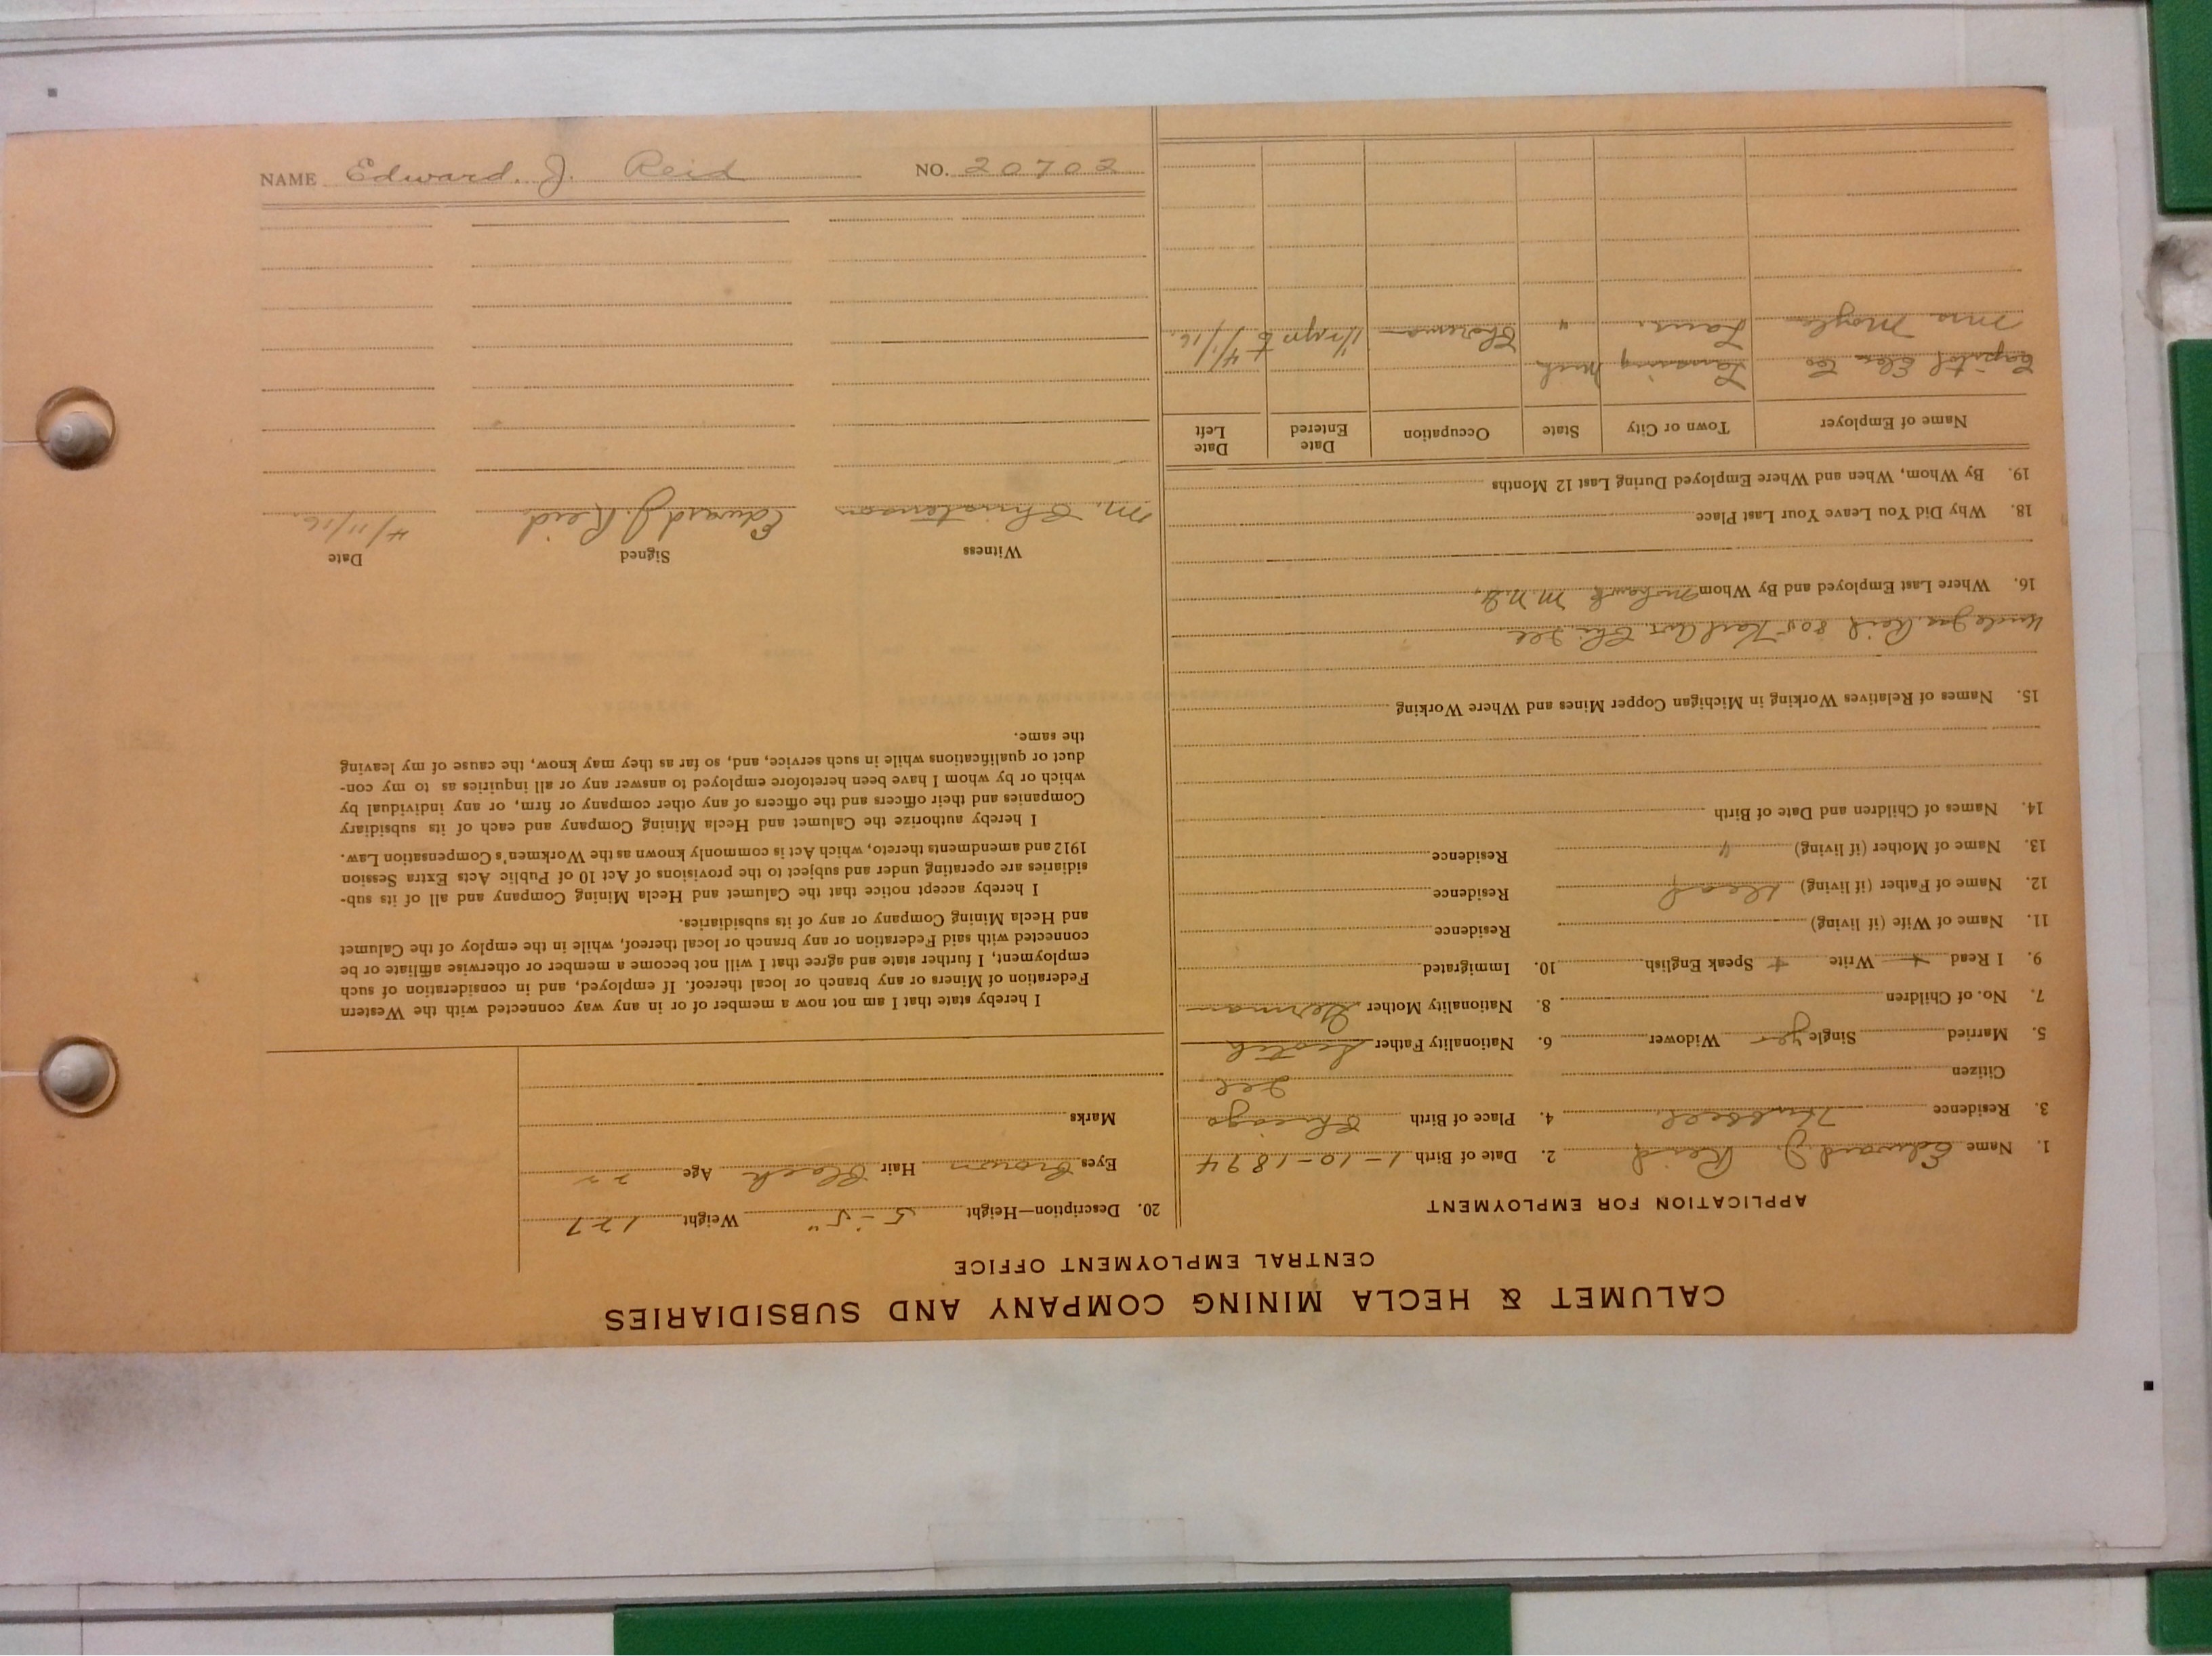 CALUMET & HECLA MINING COMPANY AND SUBSIDIARIES
CENTRAL EMPLOYMENT OFFICE
APPLICATION FOR EMPLOYMENT
1. Name Edward J. Reid 2. Date of Birth 1-10-1894
3. Residence Hubbell. 4. Place of Birth Chicago
Citizen Ill
5. Married Single yes Widower 6. Nationality Father Scotch
7. No. of Children 8. Nationality Mother German
9. I Read + Write + Speak English 10. Immigrated
11. Name of Wife (if living) Residence
12. Name of Father (if living) Dead Residence
13. Name of Mother (if living) " Residence
14. Names of Children and Date of Birth
15. Names of Relatives Working in Michigan Copper Mines and Where Working
Uncle Jas. Reid 805 Ave. Chi. Ill
16. Where Last Employed and By Whom Mohawk
18. Why Did You Leave Your Last Place
19. By Whom, When and Where Employed During Last 12 Months
Name of Employer Town or City State Occupation Date Entered Date Left
Capitol Elec Co Lansing Mich
Mrs Laur. " 4/1/16.
20. Description—Height 5-5" Weight 127
Eyes Brown Hair Black Age 22
Marks
I hereby state that I am not now a member of or in any way connected with the Western
Federation of Miners or any branch or local thereof. If employed, and in consideration of such
employment, I further state and agree that I will not become a member or otherwise affiliate or be
connected with said Federation or any branch or local thereof, while in the employ of the Calumet
and Hecla Mining Company or any of its subsidiaries.
I hereby accept notice that the Calumet and Hecla Mining Company and all of its sub-
sidiaries are operating under and subject to the provisions of Act 10 of Public Acts Extra Session
1912 and amendments thereto, which Act is commonly known as the Workmen's Compensation Law.
I hereby authorize the Calumet and Hecla Mining Company and each of its subsidiary
Companies and their officers and the officers of any other company or firm, or any individual by
which or by whom I have been heretofore employed to answer any or all inquiries as to my con-
duct or qualifications while in such service, and, so far as they may know, the cause of my leaving
the same.
Witness Signed Date
M. Christenson Edward J. Reid. 4/11/16.
NAME Edward. J. Reid NO. 20702